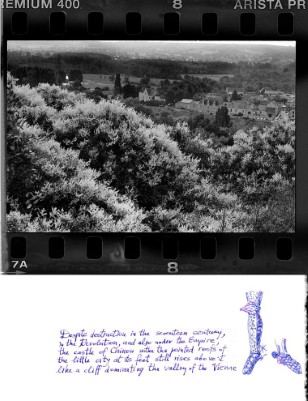 REMIUM 400
8
ARISTA PR
7A
8
Despite destruction in the seventeen century,
the Revolution, and also under the Empire,
the castle of Chinon with the pointed roofs of
the little city at its feet still rises above it
like a cliff dominating the valley of the Vienne